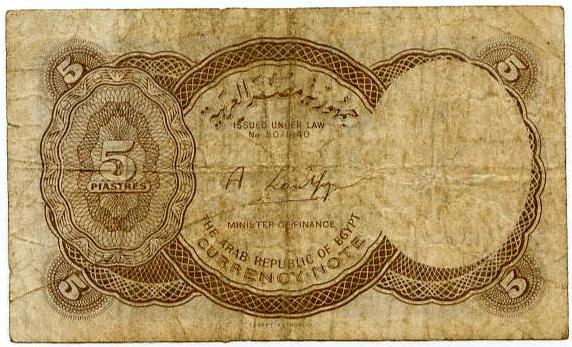 5
5
جمهورية مصر العربية
ISSUED UNDER LAW
No 50/1940
5
PIASTRES
MINISTER OF FINANCE
THE ARAB REPUBLIC OF EGYPT
CURRENCY NOTE
5
5